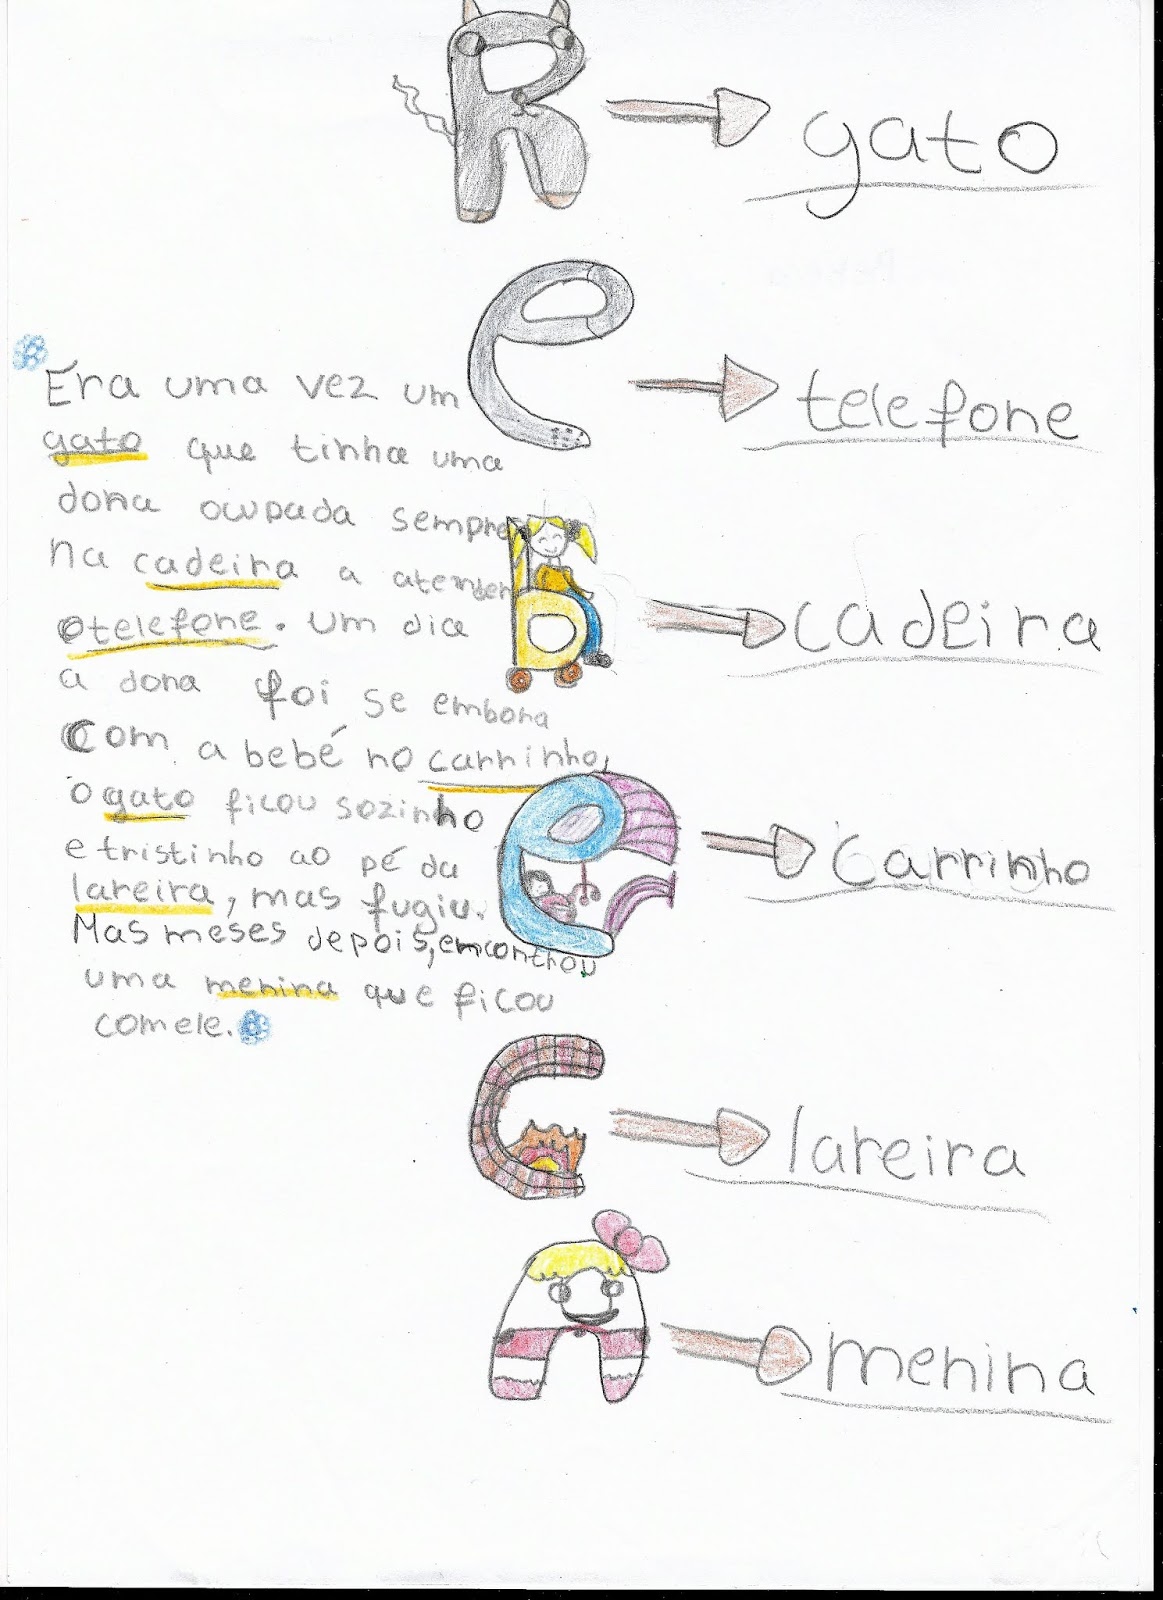 R
gato
e
telefone
Era uma vez um
gato que tinha uma
dona ocupada sempre
na cadeira a atender
o telefone. Um dia
a dona foi se embora
com a bebé no carrinho,
o gato ficou sozinho
e tristinho ao pé da
lareira, mas fugiu.
Mas meses depois, emcontrou
uma menina que ficou
com ele.
b
cadeira
e
carrinho
c
lareira
A
menina